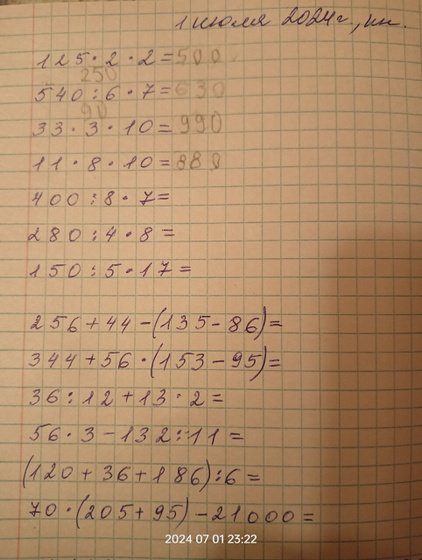 1 июля 2024г., пн.
125·2·2=500
250
540:6·7=630
90
33·3·10=990
11·8·10=880
400:8·7=
280:4·8=
150:5·17=
256+44-(135-86)=
344+56·(153-95)=
36:12+13·2=
56·3-132:11=
(120+36+186):6=
70·(205+95)-21000=
2024 07 01 23:22